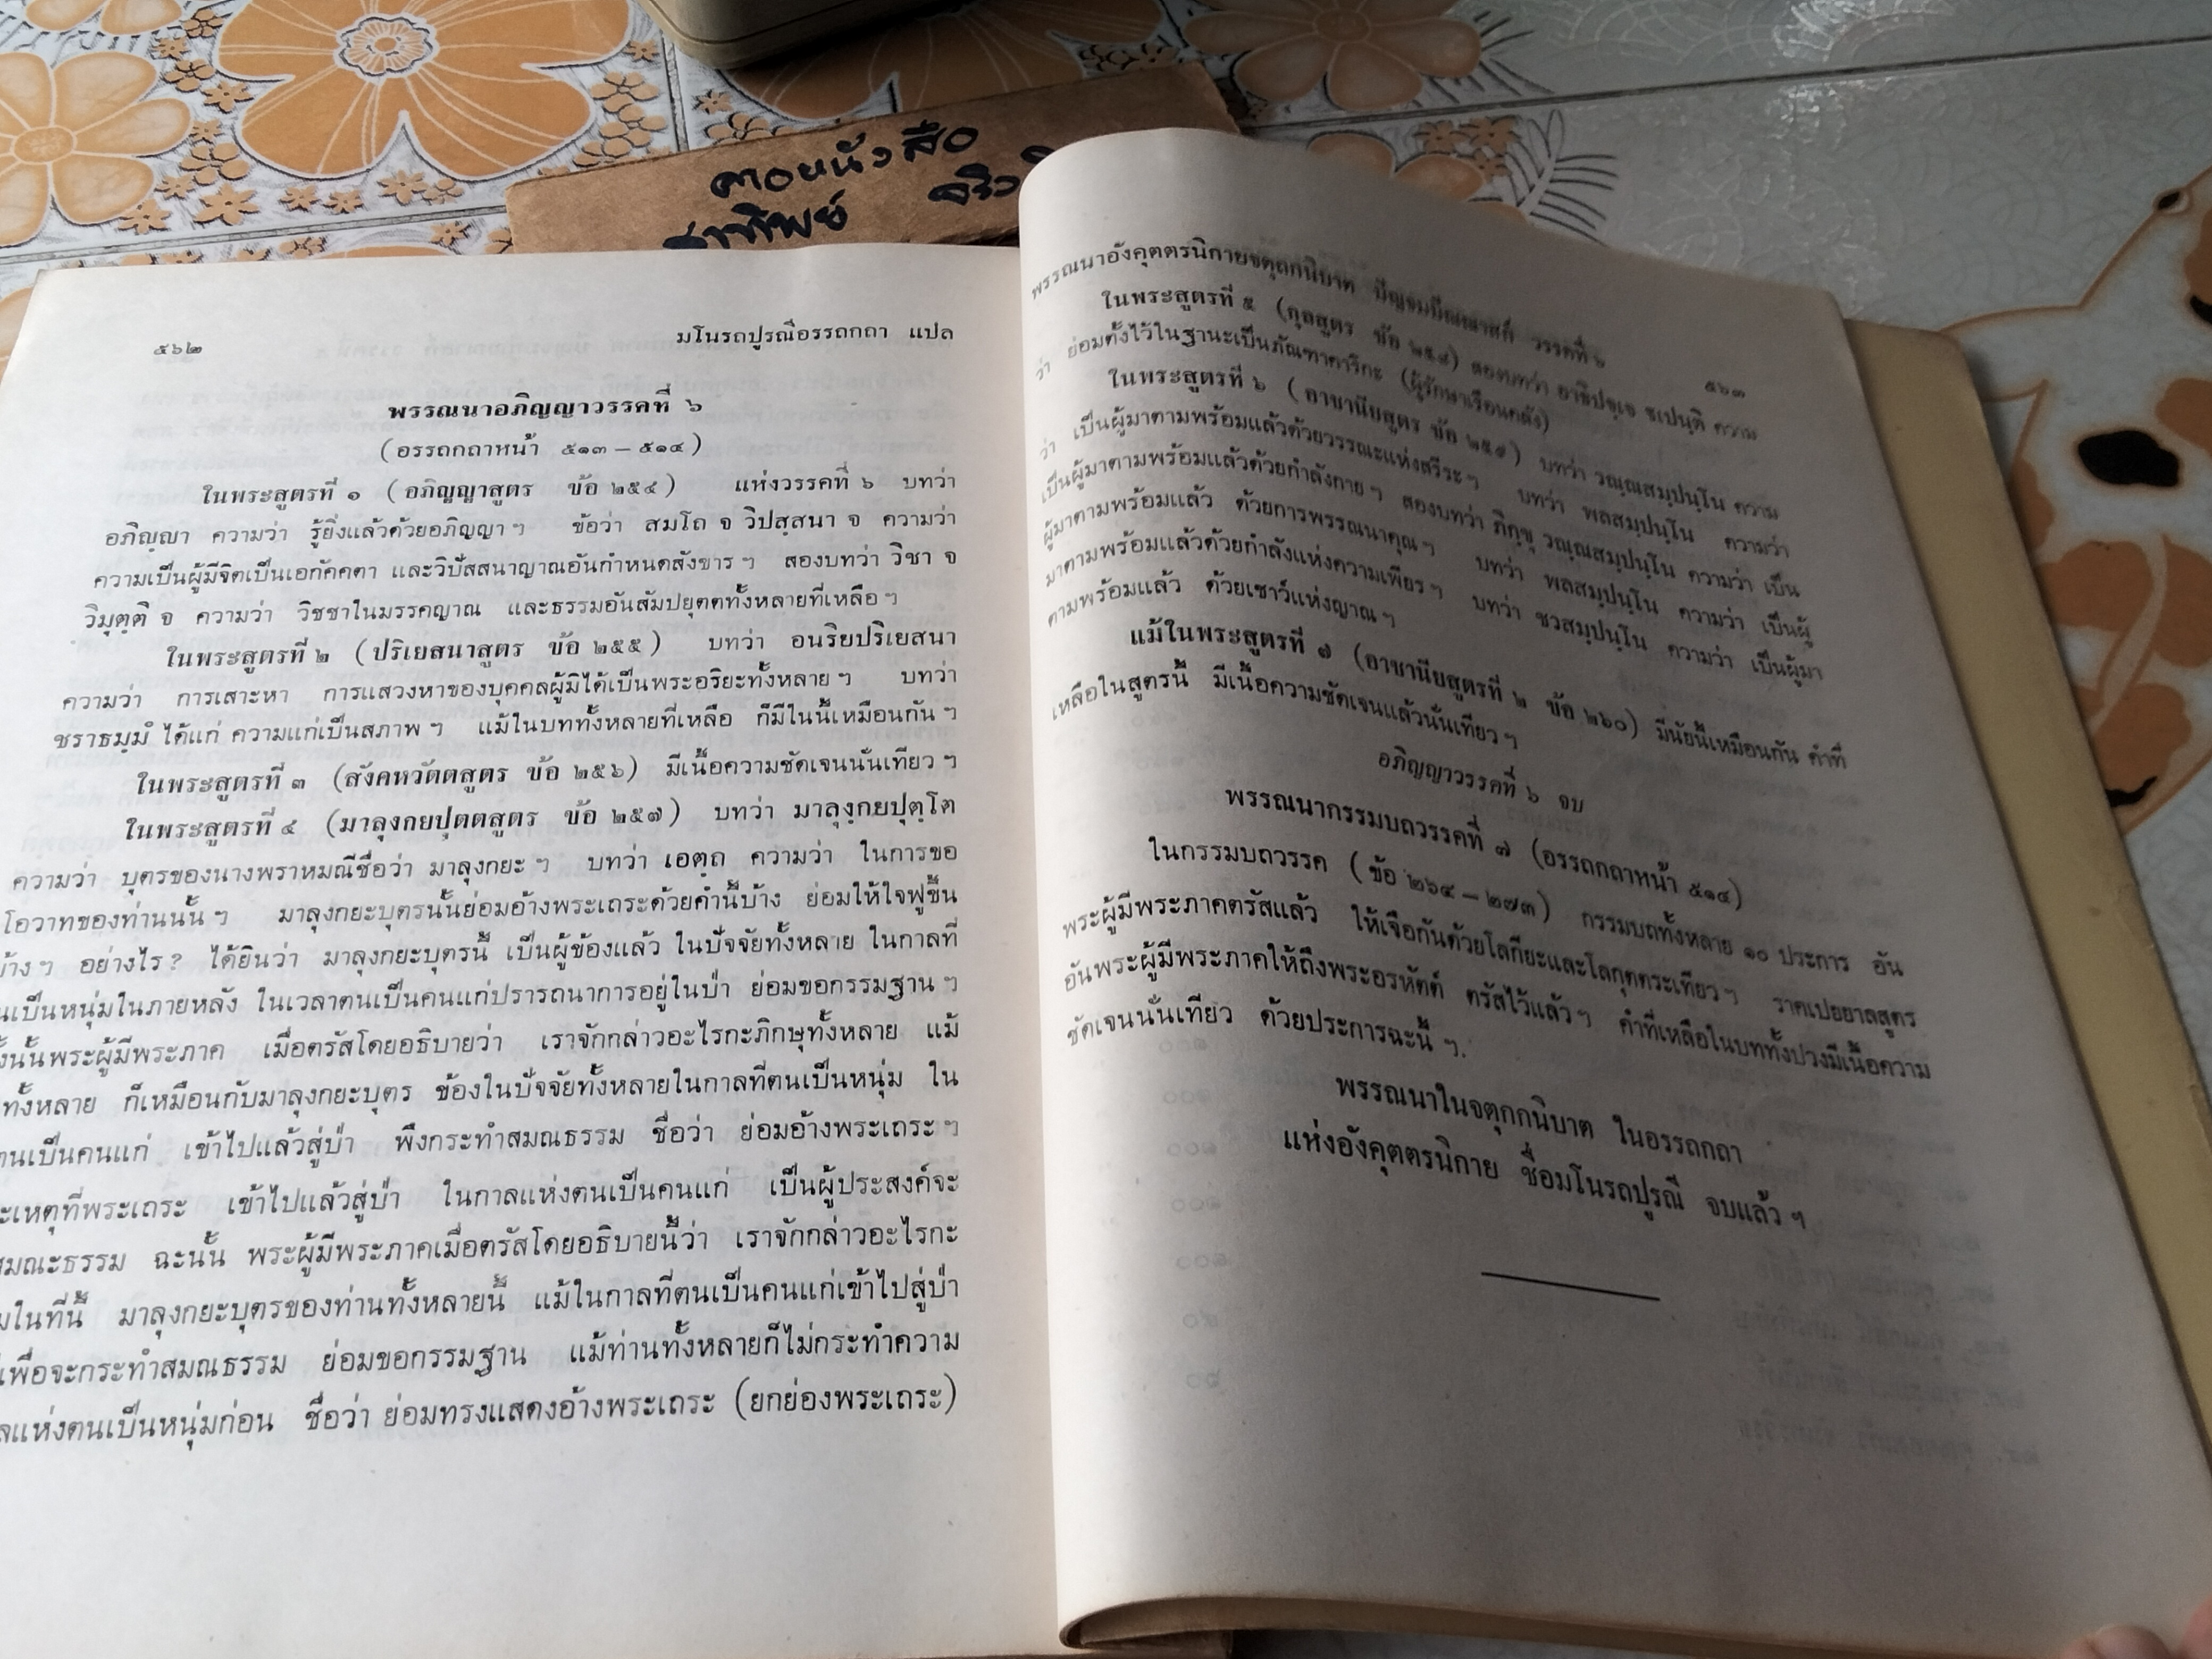 คอยหนังสือ
๕๖๒ มโนรถปูรณีอรรถกถา แปล
พรรณนาอภิญญาวรรคที่ ๖
(อรรถกถาหน้า ๕๑๓ – ๕๑๔)
ในพระสูตรที่ ๑ (อภิญญาสูตร ข้อ ๒๕๔) แห่งวรรคที่ ๖ บทว่า
อภิญฺญา ความว่า รู้ยิ่งแล้วด้วยอภิญญา ฯ ข้อว่า สมโถ จ วิปสฺสนา จ ความว่า
ความเป็นผู้มีจิตเป็นเอกัคคตา และวิปัสสนาญาณอันกำหนดสังขาร ฯ สองบทว่า วิชา จ
วิมุตฺติ จ ความว่า วิชชาในมรรคญาณ และธรรมอันสัมปยุตตทั้งหลายที่เหลือ ฯ
ในพระสูตรที่ ๒ (ปริเยสนาสูตร ข้อ ๒๕๕) บทว่า อนริยปริเยสนา
ความว่า การเสาะหา การแสวงหาของบุคคลผู้มิได้เป็นพระอริยะทั้งหลาย ฯ บทว่า
ชราธมฺมํ ได้แก่ ความแก่เป็นสภาพ ฯ แม้ในบททั้งหลายที่เหลือ ก็มีในนี้เหมือนกัน ฯ
ในพระสูตรที่ ๓ (สังคหวัตตสูตร ข้อ ๒๕๖) มีเนื้อความชัดเจนนั่นเทียว ฯ
ในพระสูตรที่ ๔ (มาลุงกยปุตตสูตร ข้อ ๒๕๗) บทว่า มาลุงฺกยปุตฺโต
ความว่า บุตรของนางพราหมณีชื่อว่า มาลุงกยะ ฯ บทว่า เอตฺถ ความว่า ในการขอ
โอวาทของท่านนั้น ฯ มาลุงกยะบุตรนั้นย่อมอ้างพระเถระด้วยคำนี้บ้าง ย่อมให้ใจฟูขึ้น
บ้าง ฯ อย่างไร ? ได้ยินว่า มาลุงกยะบุตรนี้ เป็นผู้ข้องแล้ว ในปัจจัยทั้งหลาย ในกาลที่
เป็นหนุ่มในภายหลัง ในเวลาตนเป็นคนแก่ปรารถนาการอยู่ในป่า ย่อมขอกรรมฐาน ฯ
พระผู้มีพระภาค เมื่อตรัสโดยอธิบายว่า เราจักกล่าวอะไรกะภิกษุทั้งหลาย แม้
ทั้งหลาย ก็เหมือนกับมาลุงกยะบุตร ข้องในปัจจัยทั้งหลายในกาลที่ตนเป็นหนุ่ม ใน
ตนเป็นคนแก่ เข้าไปแล้วสู่ป่า พึงกระทำสมณธรรม ชื่อว่า ย่อมอ้างพระเถระ ฯ
เหตุที่พระเถระ เข้าไปแล้วสู่ป่า ในกาลแห่งตนเป็นคนแก่ เป็นผู้ประสงค์จะ
สมณะธรรม ฉะนั้น พระผู้มีพระภาคเมื่อตรัสโดยอธิบายนี้ว่า เราจักกล่าวอะไรกะ
ในที่นี้ มาลุงกยะบุตรของท่านทั้งหลายนี้ แม้ในกาลที่ตนเป็นคนแก่เข้าไปสู่ป่า
เพื่อจะกระทำสมณธรรม ย่อมขอกรรมฐาน แม้ท่านทั้งหลายก็ไม่กระทำความ
แห่งตนเป็นหนุ่มก่อน ชื่อว่า ย่อมทรงแสดงอ้างพระเถระ (ยกย่องพระเถระ)
พรรณนาอังคุตตรนิกายจตุกกนิบาต ปัญจมปัณณาสก์ วรรคที่ ๖ ๕๖๓
ในพระสูตรที่ ๕ (กุลสูตร ข้อ ๒๕๘) สองบทว่า อาธิปจฺเจ ฐเปนฺติ ความ
ว่า ย่อมตั้งไว้ในฐานะเป็นภัณฑาคาริกะ (ผู้รักษาเรือนคลัง)
ในพระสูตรที่ ๖ (อาชานียสูตร ข้อ ๒๕๙) บทว่า วณฺณสมฺปนฺโน ความ
ว่า เป็นผู้มาตามพร้อมแล้วด้วยวรรณะแห่งสรีระ ฯ บทว่า พลสมฺปนฺโน ความว่า
เป็นผู้มาตามพร้อมแล้วด้วยกำลังกาย ฯ สองบทว่า ภิกฺขุ วณฺณสมฺปนฺโน ความว่า เป็น
ผู้มาตามพร้อมแล้ว ด้วยการพรรณนาคุณ ฯ บทว่า พลสมฺปนฺโน ความว่า เป็นผู้
มาตามพร้อมแล้วด้วยกำลังแห่งความเพียร ฯ บทว่า ชวสมฺปนฺโน ความว่า เป็นผู้มา
ตามพร้อมแล้ว ด้วยเชาว์แห่งญาณ ฯ
แม้ในพระสูตรที่ ๗ (อาชานียสูตรที่ ๒ ข้อ ๒๖๐) มีนัยนี้เหมือนกัน คำที่
เหลือในสูตรนี้ มีเนื้อความชัดเจนแล้วนั่นเทียว ฯ
อภิญญาวรรคที่ ๖ จบ
พรรณนากรรมบถวรรคที่ ๗ (อรรถกถาหน้า ๕๑๔)
ในกรรมบถวรรค (ข้อ ๒๖๔ – ๒๗๓) กรรมบถทั้งหลาย ๑๐ ประการ อัน
พระผู้มีพระภาคตรัสแล้ว ให้เจือกันด้วยโลกียะและโลกุตตระเทียว ฯ ราคเปยยาลสูตร
อันพระผู้มีพระภาคให้ถึงพระอรหัตต์ ตรัสไว้แล้ว ฯ คำที่เหลือในบททั้งปวงมีเนื้อความ
ชัดเจนนั่นเทียว ด้วยประการฉะนี้ ฯ.
พรรณนาในจตุกกนิบาต ในอรรถกถา
แห่งอังคุตตรนิกาย ชื่อมโนรถปูรณี จบแล้ว ฯ